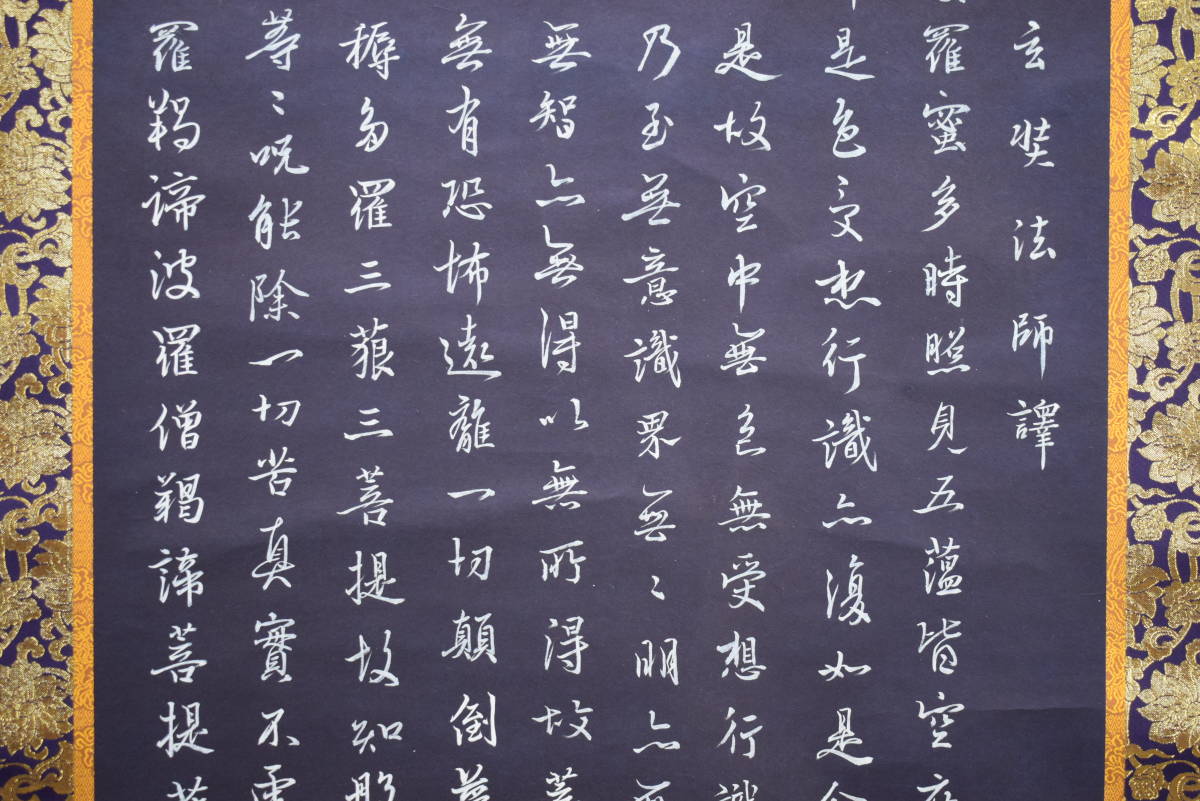 玄奘法師譯
羅蜜多時照見五蘊皆空度
是色受想行識亦復如是舍
是故空中無色無受想行識
乃至無意識界無〻明亦無
無智亦無得以無所得故菩
無有恐怖遠離一切顛倒夢
耨多羅三藐三菩提故知般
等〻呪能除一切苦真實不虛
羅羯諦波羅僧羯諦菩提菩